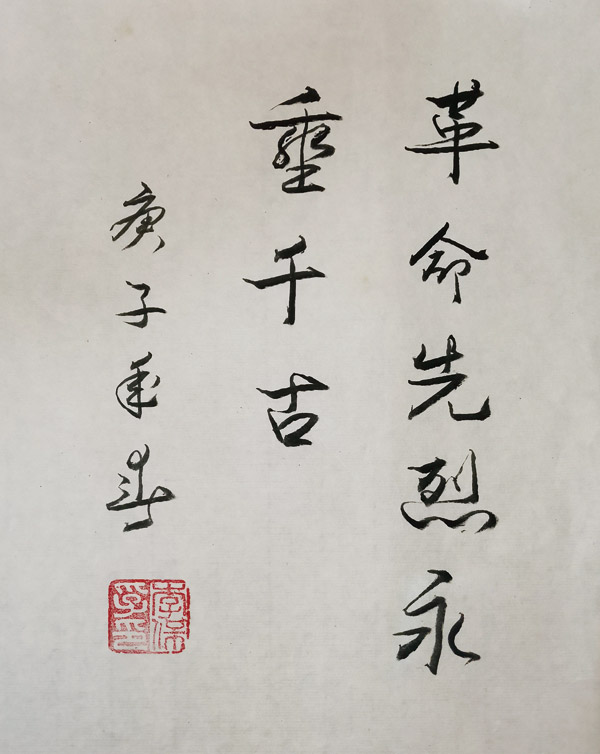 革命先烈永
垂千古
庚子年春